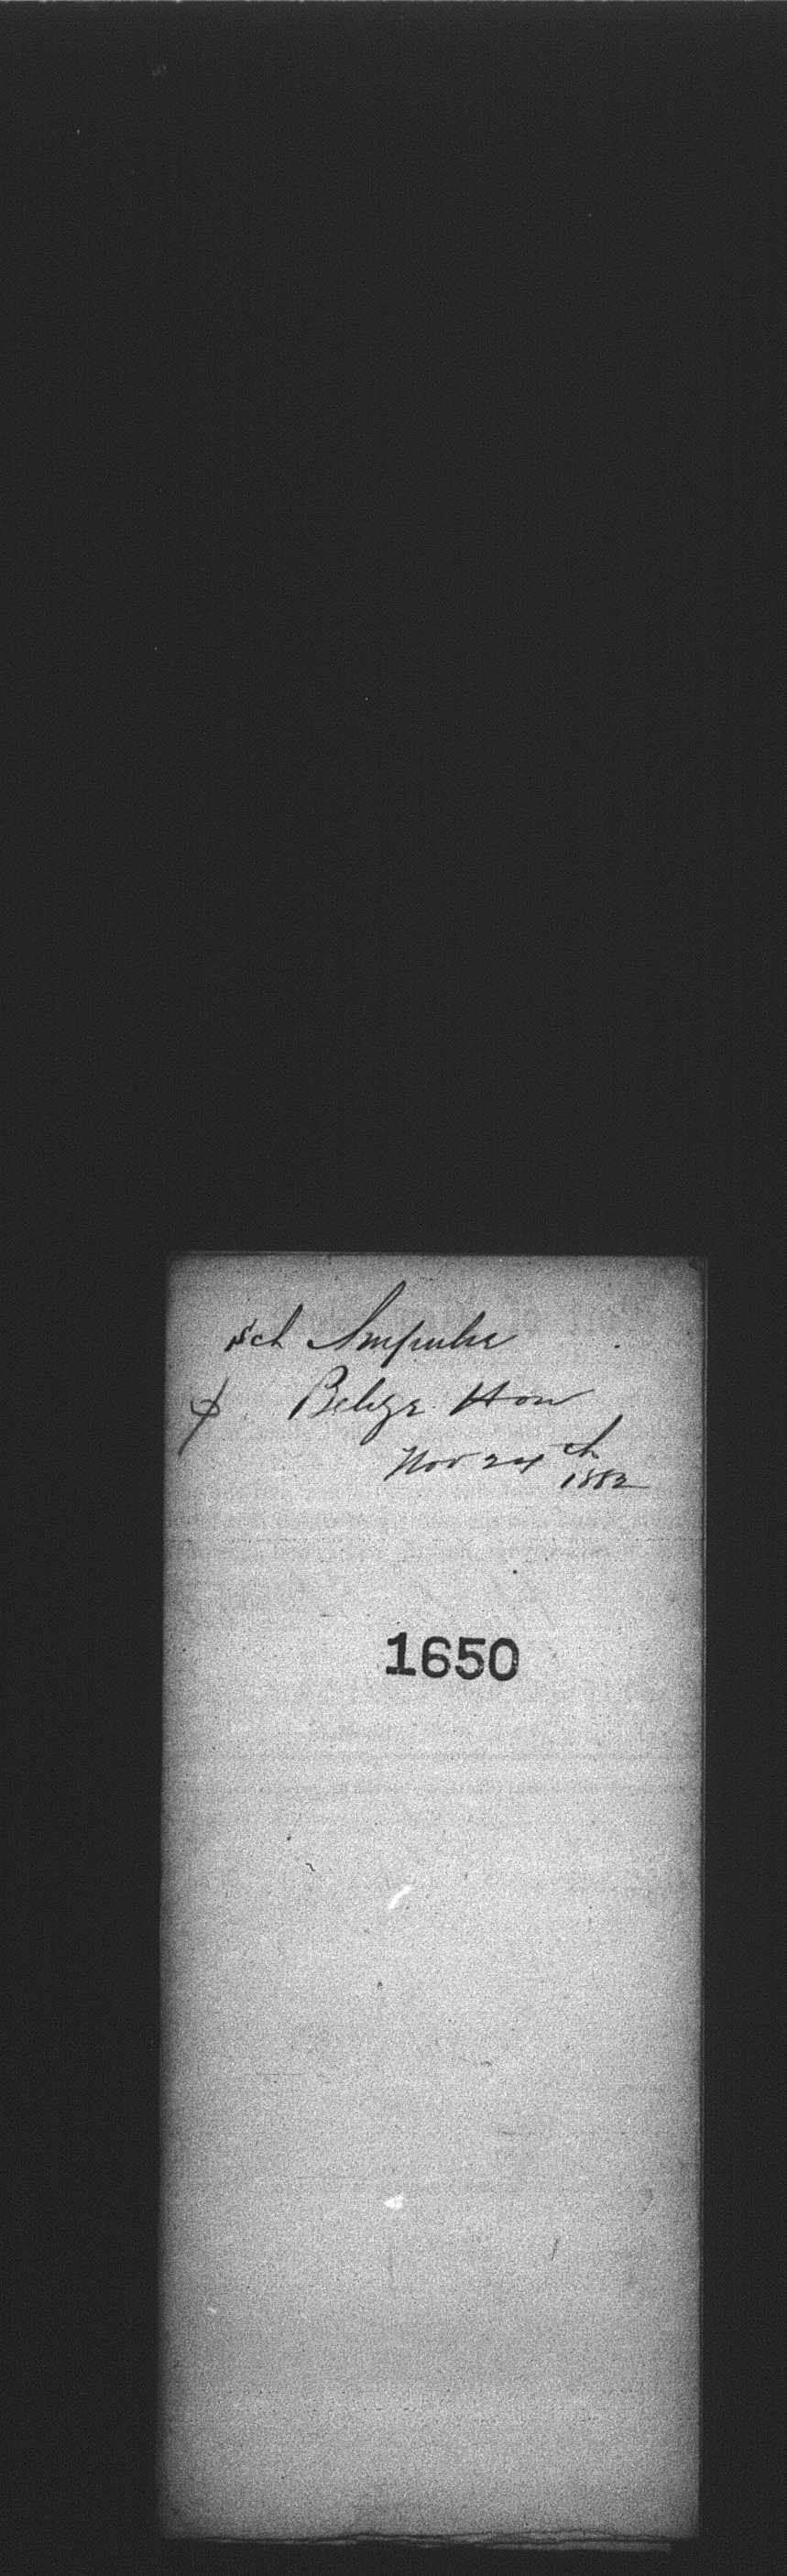 Sch Impulse
Belize Hon
Nov 24th
1882
1650